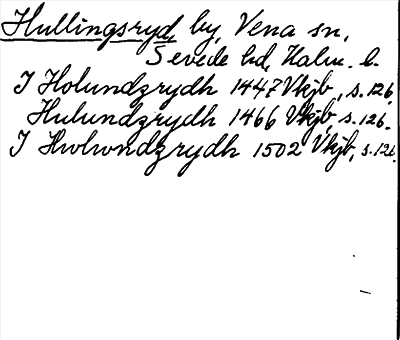 Hullingsryd, by, Vena sn,
Sevede hd, Kalm. l.
I Holundzrydh 1447 Vkjb, s.126.
Hulundzrydh 1466 Vkjb, s.126.
I Hwlwndzrydh 1502 Vkjb, s.126.